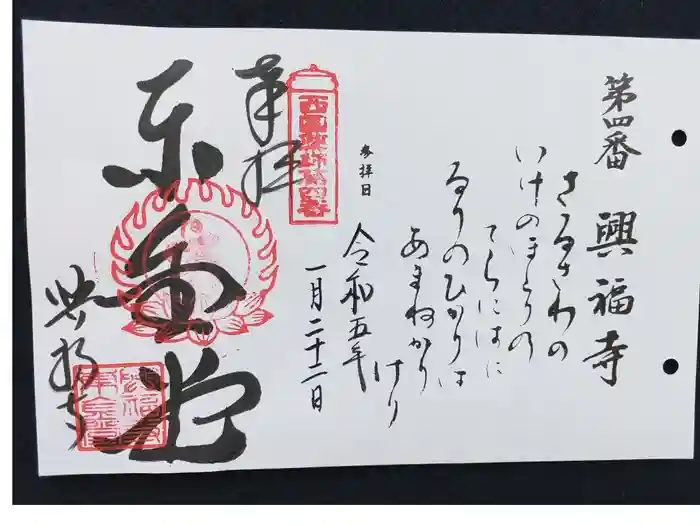 第四番 興福寺
さるさわの
いけのほとりの
てらにはに
るりのひかりは
あまねかり
けり
参拝日
令和五年
一月二十二日
奉拝
西国薬師第四番
東金堂
興福寺